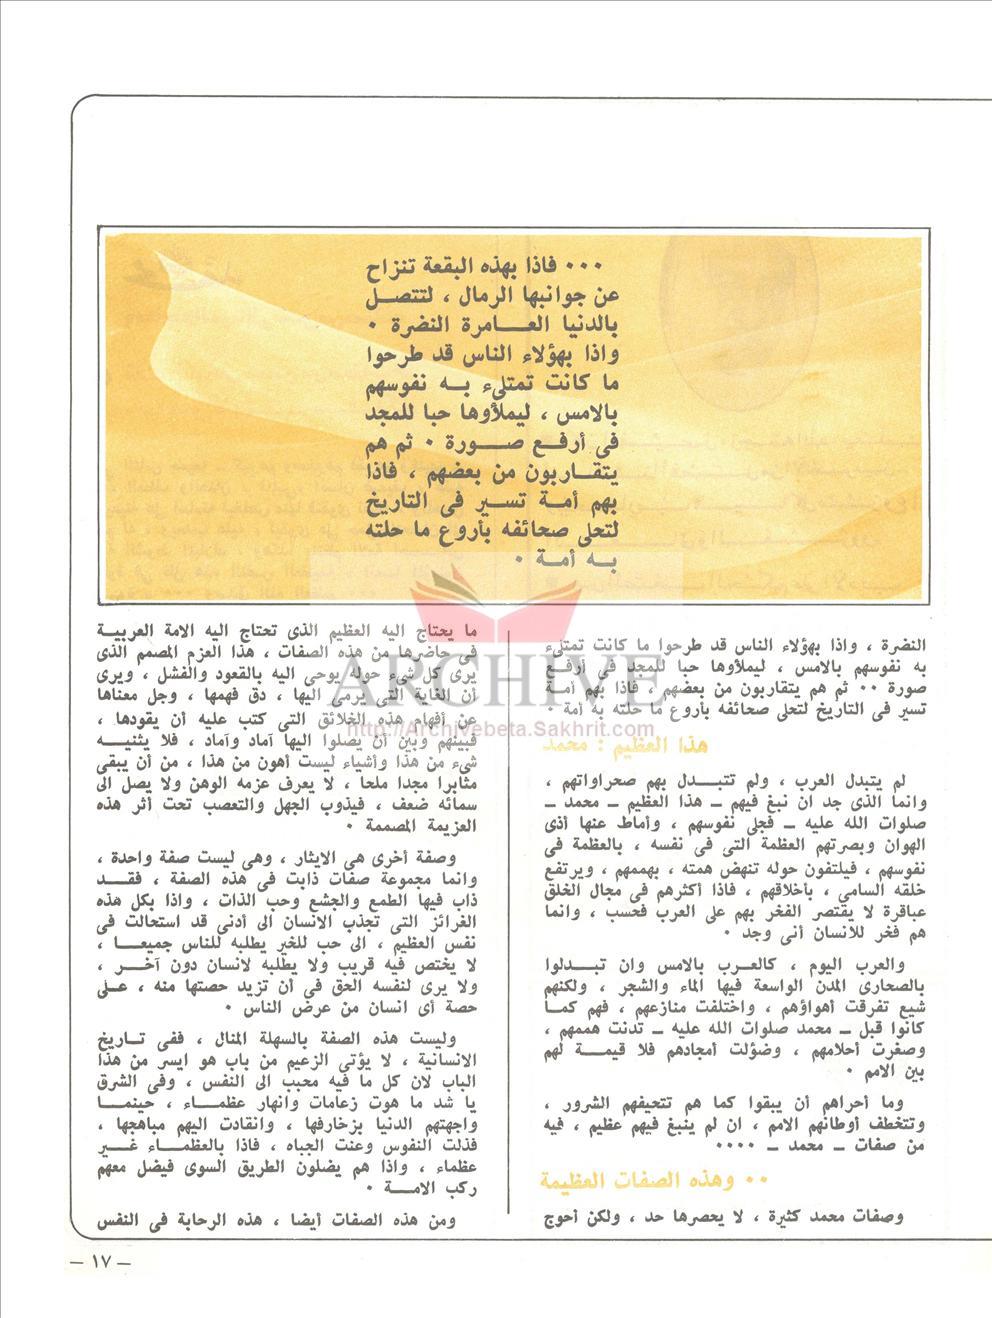 ٠٠٠ فاذا بهذه البقعة تنزاح
عن جوانبها الرمال ، لتتصل
بالدنيا العامرة النضرة ٠
واذا بهؤلاء الناس قد طرحوا
ما كانت تمتلىء به نفوسهم
بالامس ، ليملأوها حبا للمجد
فى أرفع صورة ٠ ثم هم
يتقاربون من بعضهم ، فاذا
بهم أمة تسير فى التاريخ
لتحلى صحائفه بأروع ما حلته
به أمة ٠
النضرة ، واذا بهؤلاء الناس قد طرحوا ما كانت تمتلىء
به نفوسهم بالامس ، ليملأوها حبا للمجد فى أرفع
صورة ٠٠ ثم هم يتقاربون من بعضهم ، فاذا بهم أمة
تسير فى التاريخ لتحلى صحائفه بأروع ما حلته به أمة ٠
هذا العظيم : محمد
لم يتبدل العرب ، ولم تتبدل بهم صحراواتهم ،
وانما الذى جد ان نبغ فيهم ــ هذا العظيم ــ محمد ــ
صلوات الله عليه ــ فجلى نفوسهم ، وأماط عنها أذى
الهوان وبصرتهم العظمة التى فى نفسه ، بالعظمة فى
نفوسهم ، فيلتفون حوله تنهض همته ، بهممهم ، ويرتفع
خلقه السامي ، بأخلاقهم ، فاذا أكثرهم فى مجال الخلق
عباقرة لا يقتصر الفخر بهم على العرب فحسب ، وانما
هم فخر للانسان أنى وجد ٠
والعرب اليوم ، كالعرب بالامس وان تبدلوا
بالصحارى المدن الواسعة فيها الماء والشجر ، ولكنهم
شيع تفرقت أهواؤهم ، واختلفت منازعهم ، فهم كما
كانوا قبل ــ محمد صلوات الله عليه ــ تدنت هممهم ،
وصغرت أحلامهم ، وضؤلت أمجادهم فلا قيمة لهم
بين الامم ٠
وما أحراهم أن يبقوا كما هم تتحيفهم الشرور ،
وتتخطف أوطانهم الامم ، ان لم ينبغ فيهم عظيم ، فيه
من صفات ــ محمد ــ ٠٠٠٠
٠٠ وهذه الصفات العظيمة
وصفات محمد كثيرة ، لا يحصرها حد ، ولكن أحوج
ما يحتاج اليه العظيم الذى تحتاج اليه الامة العربية
فى حاضرها من هذه الصفات ، هذا العزم المصمم الذى
يرى كل شىء حوله يوحى اليه بالقعود والفشل ، ويرى
أن الغاية التى يرمى اليها ، دق فهمها ، وجل معناها
عن أفهام هذه الخلائق التى كتب عليه أن يقودها ،
فبينهم وبين أن يصلوا اليها آماد وآماد ، فلا يثنيه
شىء من هذا وأشياء ليست أهون من هذا ، من أن يبقى
مثابرا مجدا ملحا ، لا يعرف عزمه الوهن ولا يصل الى
سمائه ضعف ، فيذوب الجهل والتعصب تحت أثر هذه
العزيمة المصممة ٠
وصفة أخرى هى الايثار ، وهى ليست صفة واحدة ،
وانما مجموعة صفات ذابت فى هذه الصفة ، فقد
ذاب فيها الطمع والجشع وحب الذات ، واذا بكل هذه
الغرائز التى تجذب الانسان الى أدنى قد استحالت فى
نفس العظيم ، الى حب للخير يطلبه للناس جميعا ،
لا يختص فيه قريب ولا يطلبه لانسان دون آخر ،
ولا يرى لنفسه الحق فى أن تزيد حصتها منه ، على
حصة أى انسان من عرض الناس ٠
وليست هذه الصفة بالسهلة المنال ، ففى تاريخ
الانسانية ، لا يؤتى الزعيم من باب هو ايسر من هذا
الباب لان كل ما فيه محبب الى النفس ، وفى الشرق
يا شد ما هوت زعامات وانهار عظماء ، حينما
واجهتهم الدنيا بزخارفها ، وانقادت اليهم مباهجها ،
فذلت النفوس وعنت الجباه ، فاذا بالعظماء غير
عظماء ، واذا هم يضلون الطريق السوى فيضل معهم
ركب الامة ٠
ومن هذه الصفات أيضا ، هذه الرحابة فى النفس
ــ ١٧ ــ
ARCHIVE
http://Archivebeta.Sakhrit.com